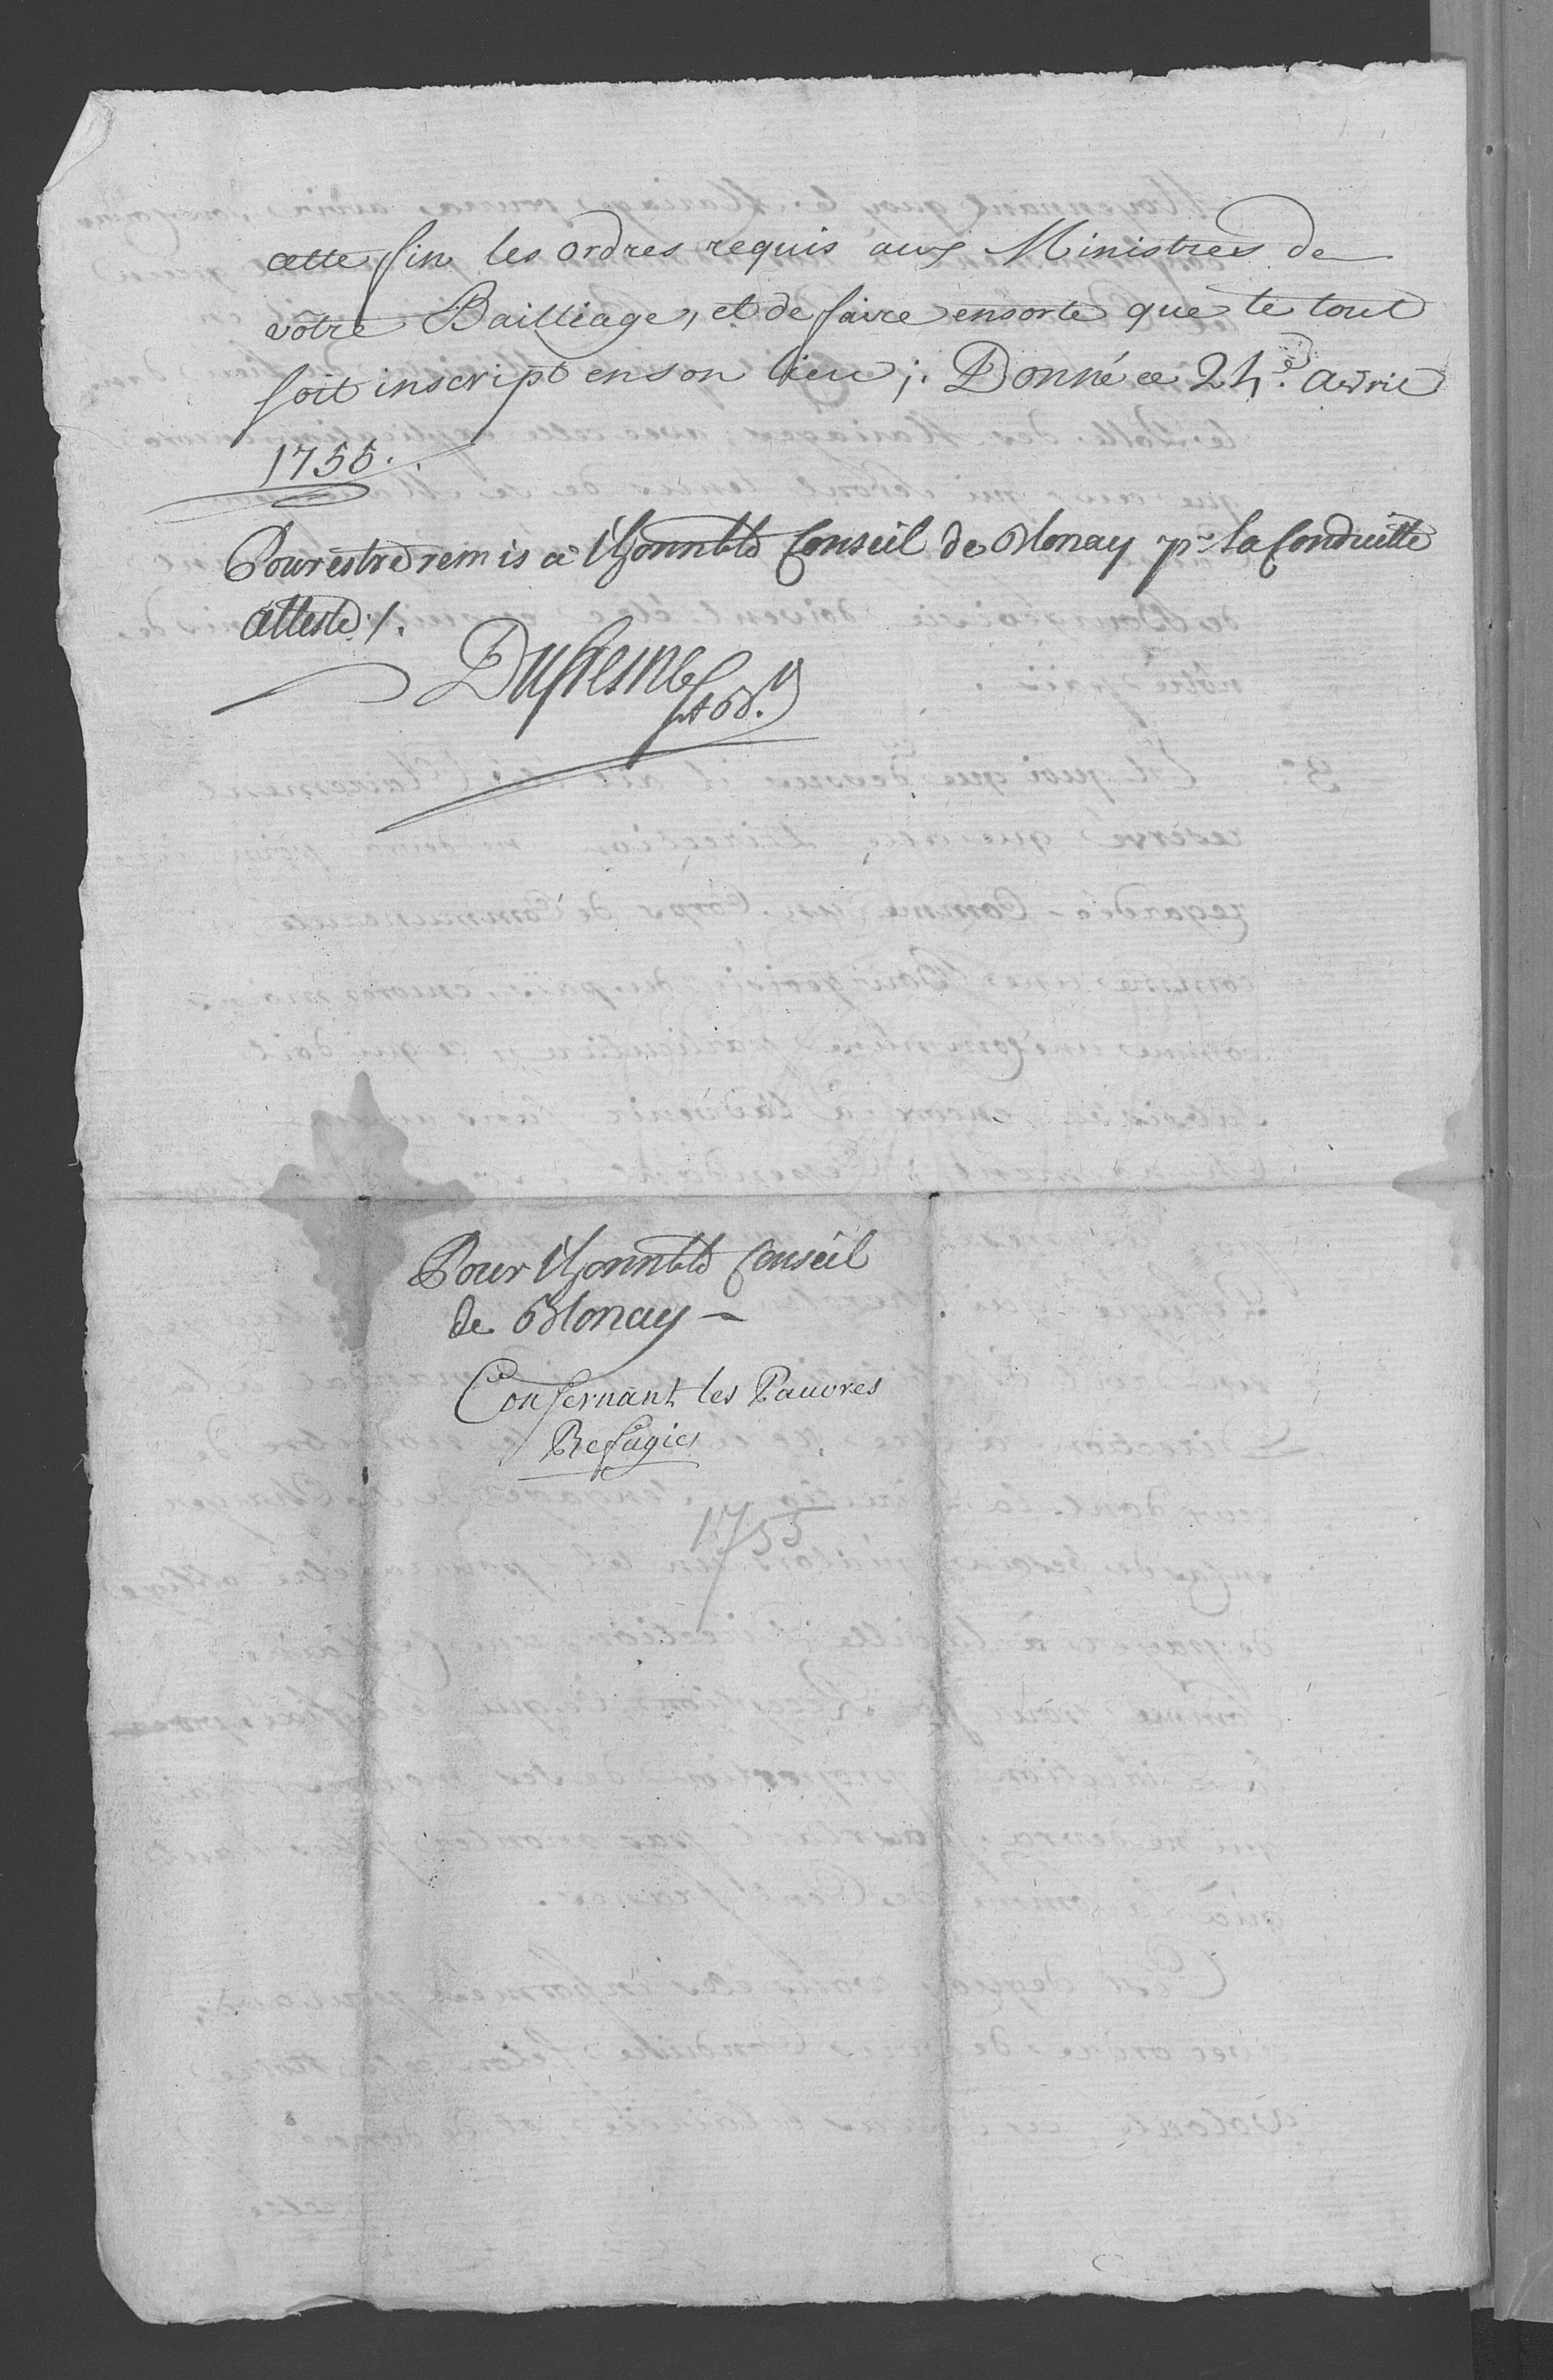 cette fin les ordres requis aux Ministres de
vôtre Bailliage, et de faire ensorte que le tout
soit inscript en son lieu ;. Donné ce 24.e avril
1755.
Pour estre remis a l'honnble Conseil de Blonay pr. sa Conduitte
atteste /.
Dufresne
Pour l'honnble Conseil
de Blonay —
Consernant les Pauvres
Refugies
1755